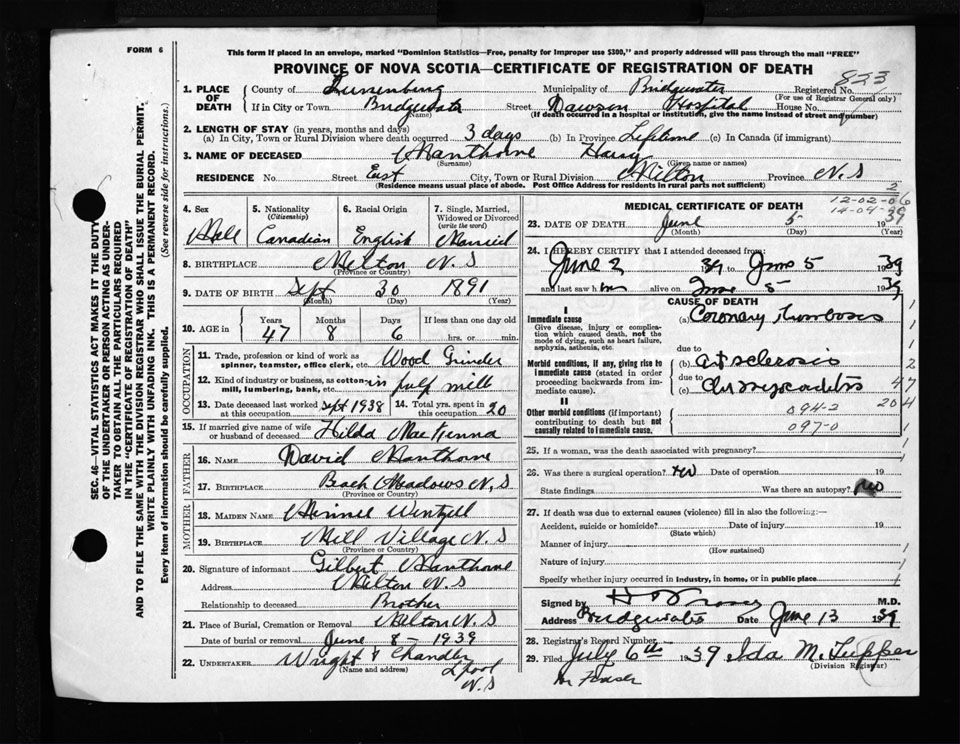 FORM 6
This form if placed in an envelope, marked "Dominion Statistics—Free, penalty for improper use $300," and properly addressed will pass through the mail "FREE"
PROVINCE OF NOVA SCOTIA—CERTIFICATE OF REGISTRATION OF DEATH
823
1. PLACE OF DEATH
County of Lunenburg Municipality of Bridgewater Registered No.
(For use of Registrar General only)
If in City or Town Bridgewater Street Dawson Hospital House No.
(Name) (If death occurred in a hospital or institution, give the name instead of street and number)
2. LENGTH OF STAY (in years, months and days)
(a) In City, Town or Rural Division where death occurred 3 days (b) In Province Lifetime (c) In Canada (if immigrant)
3. NAME OF DECEASED Manthorne Harry
(Surname) (Given name or names)
RESIDENCE No. Street East City, Town or Rural Division Milton Province N.S
(Residence means usual place of abode. Post Office Address for residents in rural parts not sufficient)
4. Sex Male
5. Nationality (Citizenship) Canadian
6. Racial Origin English
7. Single, Married, Widowed or Divorced (write the word) Married
8. BIRTHPLACE Milton N.S
(Province or Country)
9. DATE OF BIRTH Sept 30 1891
(Month) (Day) (Year)
10. AGE in Years 47 Months 8 Days 6 If less than one day old hrs. or min.
OCCUPATION
11. Trade, profession or kind of work as spinner, teamster, office clerk, etc. Wood Grinder
12. Kind of industry or business, as cotton-mill, lumbering, bank, etc. in pulp mill
13. Date deceased last worked at this occupation Sept 1938 14. Total yrs. spent in this occupation 20
15. If married give name of wife or husband of deceased Hilda MacKenna
FATHER
16. NAME David Manthorne
17. BIRTHPLACE Beach Meadows N.S
(Province or Country)
MOTHER
18. MAIDEN NAME Minnie Wentzell
19. BIRTHPLACE Mill Village N.S
(Province or Country)
20. Signature of informant Gilbert Manthorne
Address Milton N.S
Relationship to deceased Brother
21. Place of Burial, Cremation or Removal Milton N.S
Date of burial or removal June 8 - 1939
22. UNDERTAKER Wright & Chandler
(Name and address) L'pool
N.S
MEDICAL CERTIFICATE OF DEATH
2
12-02-06
14-04-39
23. DATE OF DEATH June 5 19 39
(Month) (Day) (Year)
24. I HEREBY CERTIFY that I attended deceased from:
June 2 39 to June 5 1939
and last saw him alive on June 5 1939
CAUSE OF DEATH
I
Immediate cause
Give disease, injury or complication which caused death, not the mode of dying, such as heart failure, asphyxia, asthenia, etc.
(a) Coronary thrombosis
due to
Morbid conditions, if any, giving rise to immediate cause (stated in order proceeding backwards from immediate cause).
(b) Art sclerosis
due to
(c) Chr myocarditis
II
Other morbid conditions (if important) contributing to death but not causally related to immediate cause.
094-2
097-0
1
1
1
2
47
204
25. If a woman, was the death associated with pregnancy?
26. Was there a surgical operation? no Date of operation 19
State findings Was there an autopsy? no
27. If death was due to external causes (violence) fill in also the following:—
Accident, suicide or homicide? Date of injury 19
(State which)
Manner of injury
(How sustained)
Nature of injury
Specify whether injury occurred in industry, in home, or in public place
Signed by M.D.
Address Bridgewater Date June 13 1939
28. Registrar's Record Number
29. Filed July 6th 1939 Ida M. Tupper
(Division Registrar)
SEC. 46—VITAL STATISTICS ACT MAKES IT THE DUTY
OF THE UNDERTAKER OR PERSON ACTING AS UNDERTAKER TO OBTAIN ALL THE PARTICULARS REQUIRED
IN THE "CERTIFICATE OF REGISTRATION OF DEATH"
AND TO FILE THE SAME WITH THE DIVISION REGISTRAR WHO SHALL ISSUE THE BURIAL PERMIT.
WRITE PLAINLY WITH UNFADING INK. THIS IS A PERMANENT RECORD.
Every item of information should be carefully supplied. (See reverse side for instructions.)